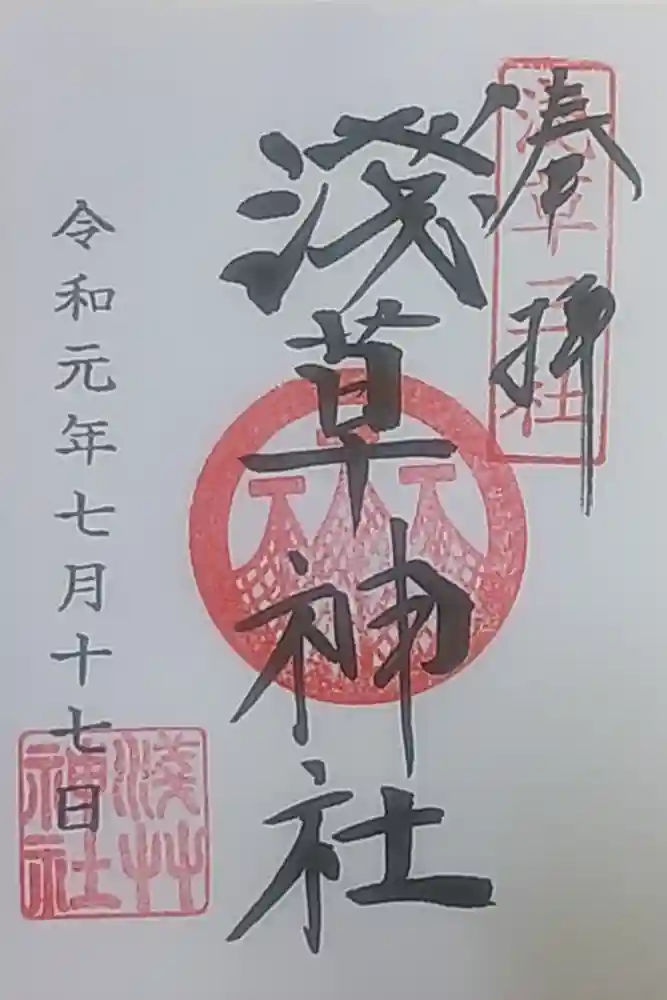 奉拝
淺草神社
令和元年七月十七日
浅草三社
淺艸
神社